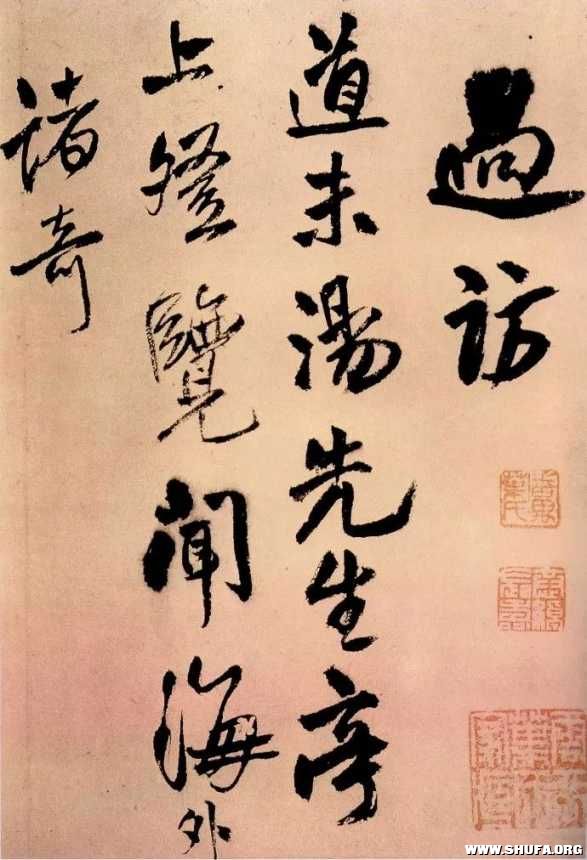 過訪
道未湯先生亭
上登覽聞海外
諸奇
WWW.SHUFA.ORG